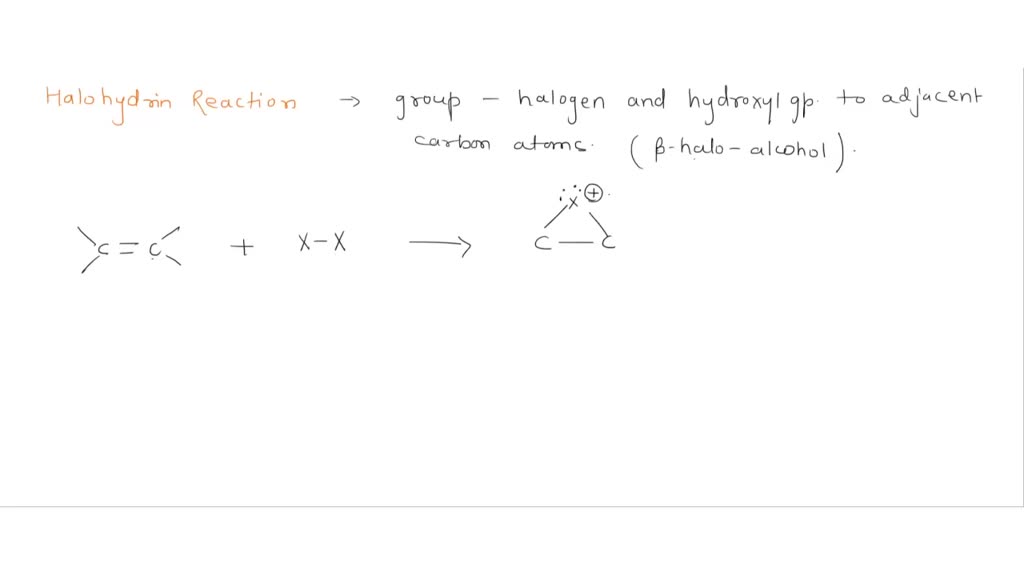 Halohydrin Reaction → group - halogen and hydroxyl gp. to adjacent
carbon atoms. (β-halo-alcohol).
C = C + X-X → :Ẍ ⊕
C — C